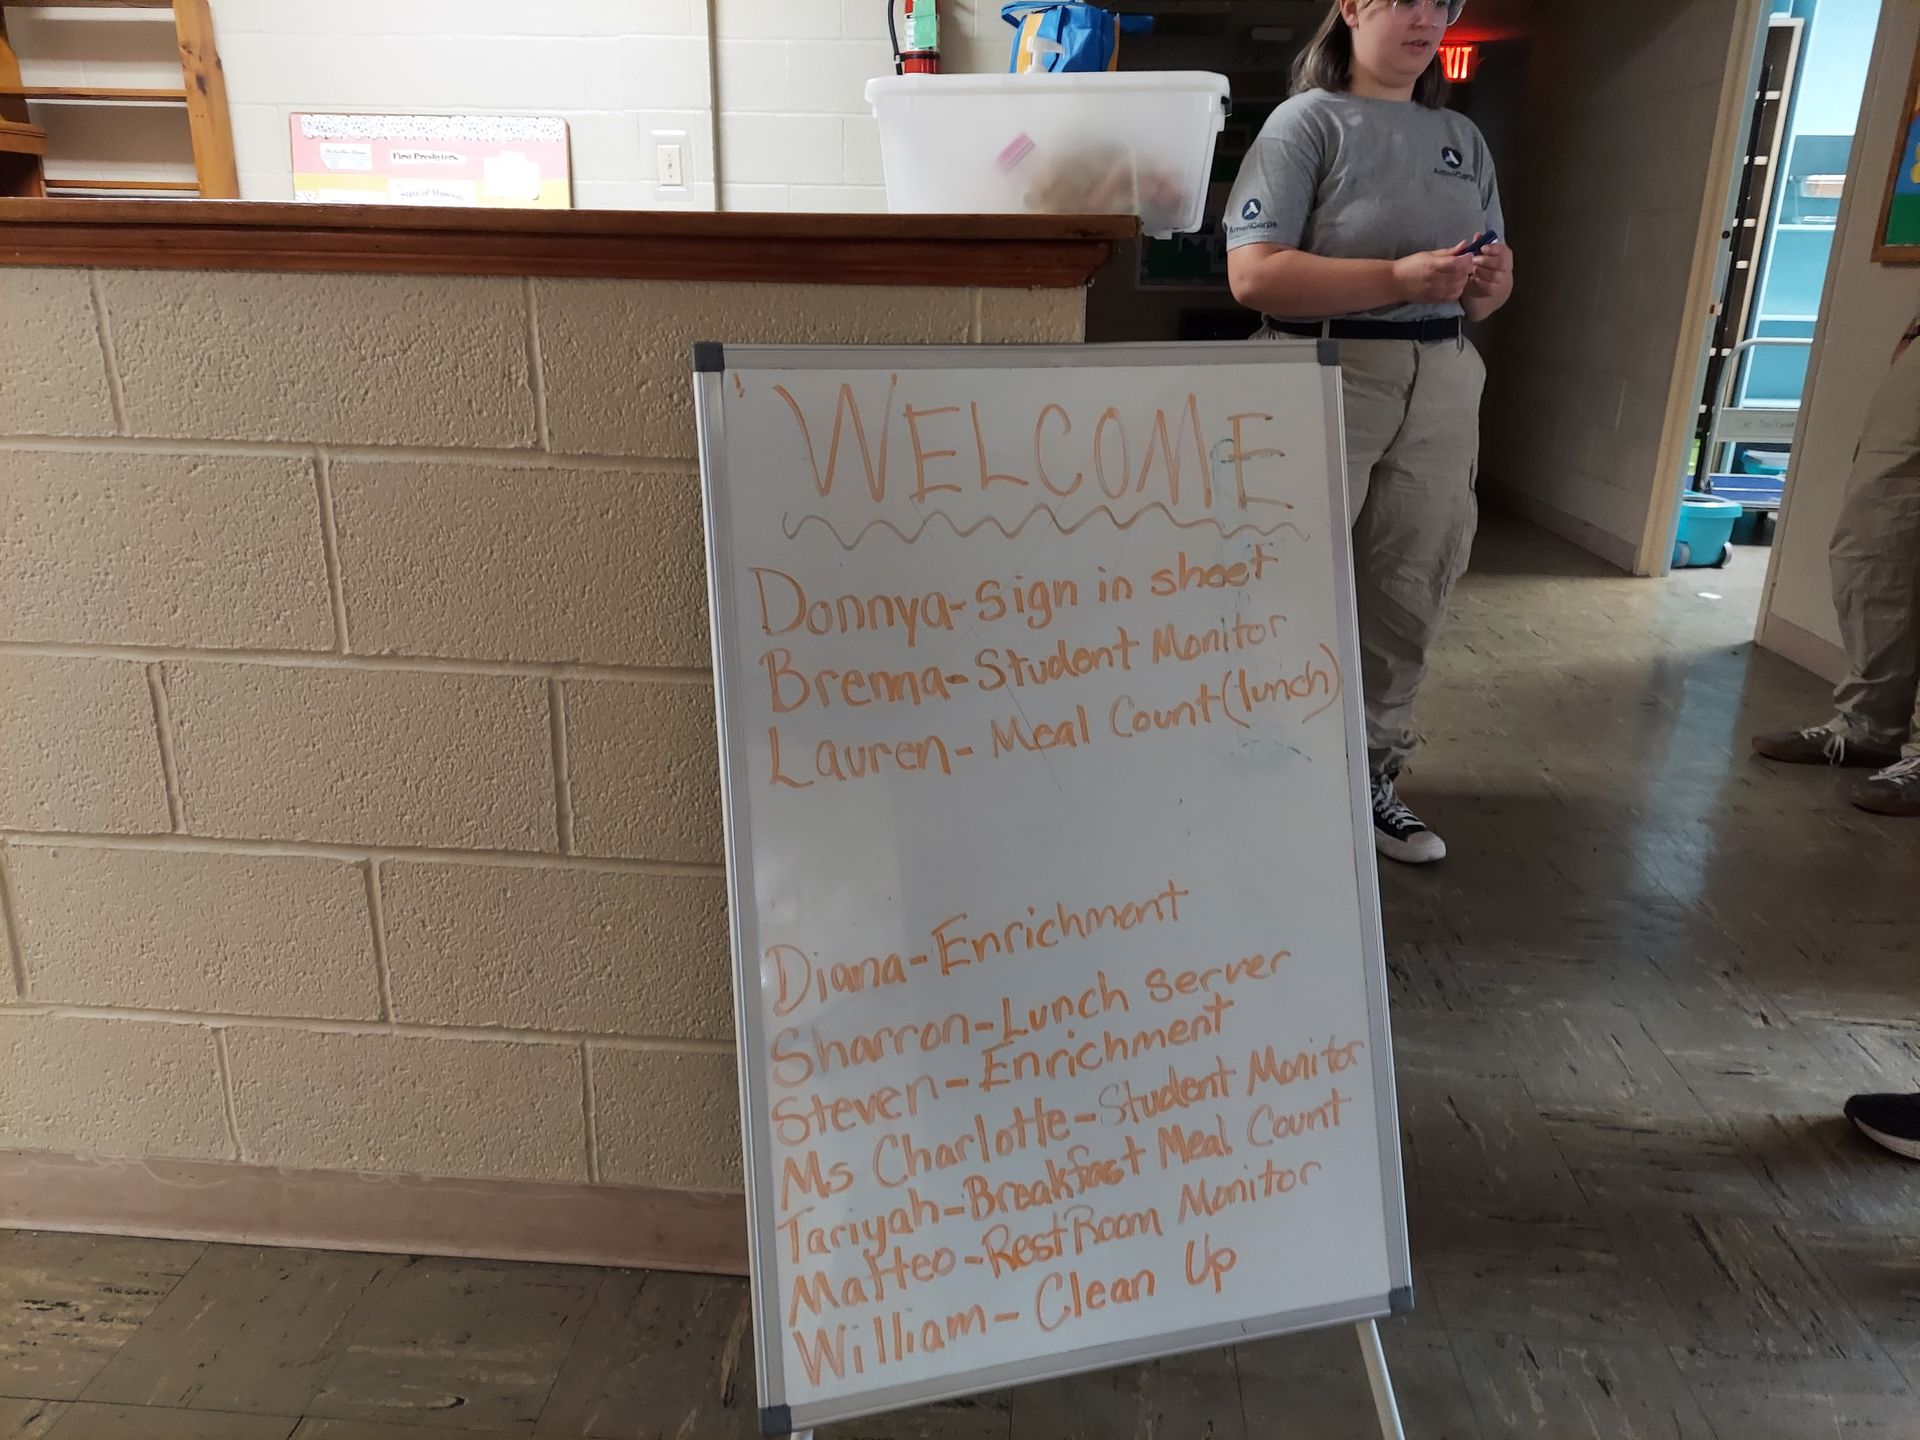 First Presbyter
State of Missouri
EXIT
AmeriCorps
AmeriCorps
WELCOME
Donnya-Sign in sheet
Brenna-Student Monitor
Lauren-Meal Count (lunch)
Diana-Enrichment
Sharron-Lunch Server
Steven-Enrichment
Ms Charlotte-Student Monitor
Tariyah-Breakfast Meal Count
Matteo-RestRoom Monitor
William-Clean Up